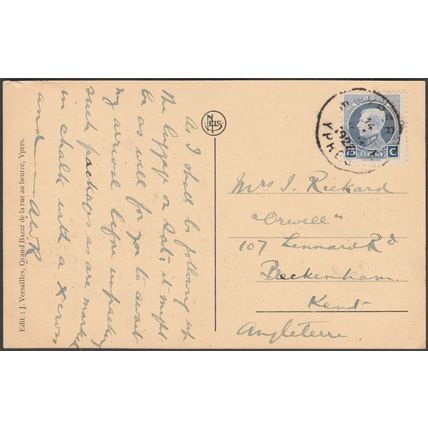 As I shall be following up
the luggage on Sat: it might
be as well for you to await
my arrival before unpacking
such packages as are marked
in chalk with a X cross
and — AWR
Edit.: J. Versailles, Grand Bazar de la rue au beurre, Ypres.
NELS
YPER
YPRES
Mrs J. Rickard
"Orwell"
107 Lennard Rd
Beckenham.
Kent
Angleterre